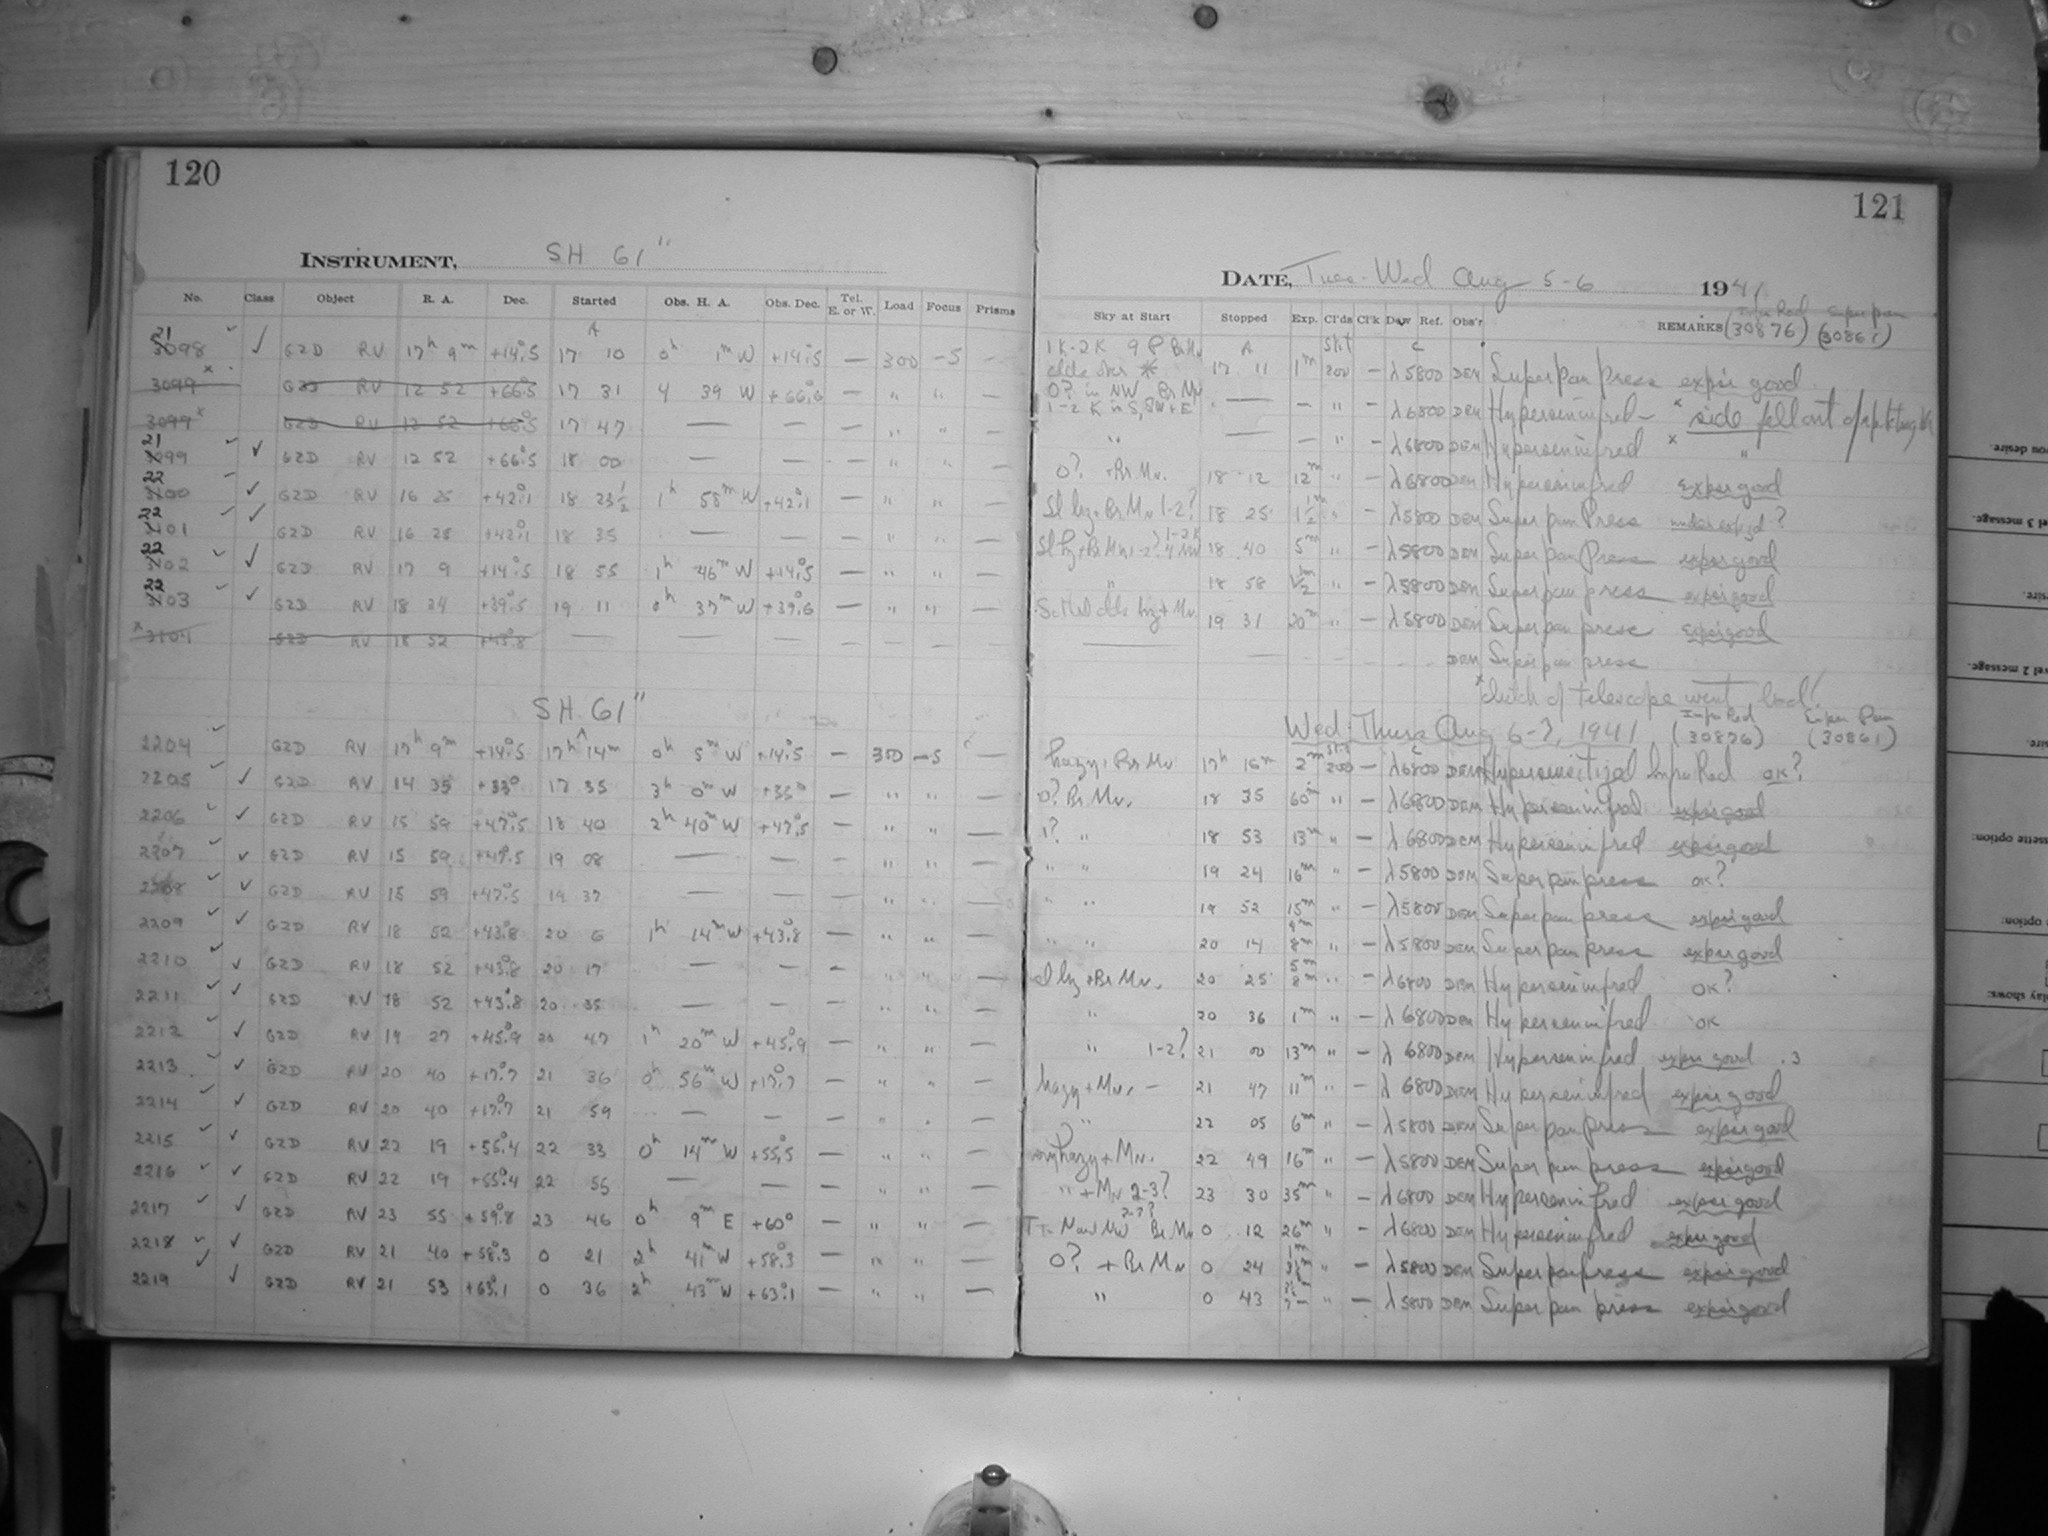 120
INSTRUMENT, SH 61"
No. Class Object R. A. Dec. Started Obs. H. A. Obs. Dec. Tel. E. or W. Load Focus Prisms
21
3098 ✓ GZD RV 17h 9m +14°.5 17 10 0h 1m W +14°.5 — 300 -5 —
3099 GZD RV 12 52 +66°.5 17 31 4 39 W +66.6 — " " —
3099 GZD RV 12 52 +66°.5 17 47 — — — " "
21
3099 ✓ GZD RV 12 52 +66°.5 18 00 — — — " " —
22
3100 ✓ GZD RV 16 28 +42°.1 18 23½ 1h 58m W +42°.1 — " " —
22
3101 ✓ GZD RV 16 28 +42°.1 18 35 — — — " " —
22
3102 ✓ GZD RV 17 9 +14°.5 18 55 1h 46m W +14°.5 — " " —
22
3103 ✓ GZD RV 18 34 +39°.5 19 11 0h 37m W +39°.6 — " " —
3104 GZD RV 18 52 +43°.8 — — — — — — —
SH 61"
2204 GZD RV 17h 9m +14°.5 17h 14m 0h 5m W +14°.5 — 300 -5 —
2205 ✓ GZD RV 14 35 +33° 17 35 3h 0m W +33° — " " —
2206 ✓ GZD RV 15 59 +47°.5 18 40 2h 40m W +47°.5 — " " —
2207 ✓ GZD RV 15 59 +47°.5 19 08 — — — " " —
2208 ✓ GZD RV 15 59 +47°.5 19 37 — — — " " —
2209 ✓ GZD RV 18 52 +43.8 20 6 1h 14m W +43.8 — " " —
2210 ✓ GZD RV 18 52 +43.8 20 17 — — — " " —
2211 ✓ GZD RV 18 52 +43.8 20 35 — — — " " —
2212 ✓ GZD RV 19 27 +45.9 20 47 1h 20m W +45.9 — " " —
2213 ✓ GZD RV 20 40 +17°.7 21 36 0h 56m W +17°.7 — " " —
2214 ✓ GZD RV 20 40 +17°.7 21 59 — — — " " —
2215 ✓ GZD RV 22 19 +55.4 22 33 0h 14m W +55.5 — " " —
2216 ✓ GZD RV 22 19 +55.4 22 55 — — — " " —
2217 ✓ GZD RV 23 55 +59.8 23 46 0h 9m E +60° — " " —
2218 ✓ GZD RV 21 40 +58.3 0 21 2h 41m W +58.3 — " " —
2219 ✓ GZD RV 21 53 +63.1 0 36 2h 43m W +63.1 — " " —
121
DATE, Tues-Wed Aug 5-6 1941
Infra Red Super pan
Sky at Start Stopped Exp. Cl'ds Cl'k Dew Ref. Obs'r REMARKS (30876) (30861)
1K-2K 17 11 1m 200 — λ5800 DEM Super Pan Press expos good
0? in NW Br Mn
1-2 K in S, SW + E — — " — λ6800 DEM Hypersen infred - x side fell out of
" — — " — λ6800 DEM Hypersen infred x "
0? + Br. Mn. 18 12 12m " — λ6800 DEM Hypersen infred expos good
Sl hz + Br Mn 1-2? 18 25 1½m " — λ5800 DEM Super pan Press underexpsd?
18 40 5m " — λ5800 DEM Super pan Press expos good
" 18 58 " — λ5800 DEM Super pan press expos good
hzy + Mn 19 31 20m " — λ5800 DEM Super pan press expos good
DEM Super pan press
x clutch of telescope went bad!
Wed-Thurs Aug 6-7, 1941 Infra Red (30876) Super Pan (30861)
hazy + Br Mn 17h 16m 2m 200 — λ6800 DEM Hypersensitized Infra Red OK?
0? Br Mn. 18 35 60m " — λ6800 DEM Hypersen infred expos good
1? " 18 53 13m " — λ6800 DEM Hypersen infred expos good
" " 19 24 16m " — λ5800 DEM Super pan press OK?
" " 19 52 15m " — λ5800 DEM Super pan press expos good
" " 20 14 8m " — λ5800 DEM Super pan press expos good
sl hz + Br Mn. 20 25 8m " — λ6800 DEM Hypersen infred OK?
" 20 36 1m " — λ6800 DEM Hypersen infred OK
" 1-2? 21 00 13m " — λ6800 DEM Hypersen infred expos good
hazy + Mn. — 21 47 11m " — λ6800 DEM Hypersen infred expos good
" 22 05 6m " — λ5800 DEM Super pan press expos good
very hazy + Mn. 22 49 16m " — λ5800 DEM Super pan press expos good
" + Mn 2-3? 23 30 35m " — λ6800 DEM Hypersen infred expos good
Br Mn 0 12 26m " — λ6800 DEM Hypersen infred expos good
0? + Br Mn 0 24 " — λ5800 DEM Super pan press expos good
" 0 43 " — λ5800 DEM Super pan press expos good
you desire.
vel 3 message.
sire.
vel 2 message.
sire.
ssette option:
e option
play shows: